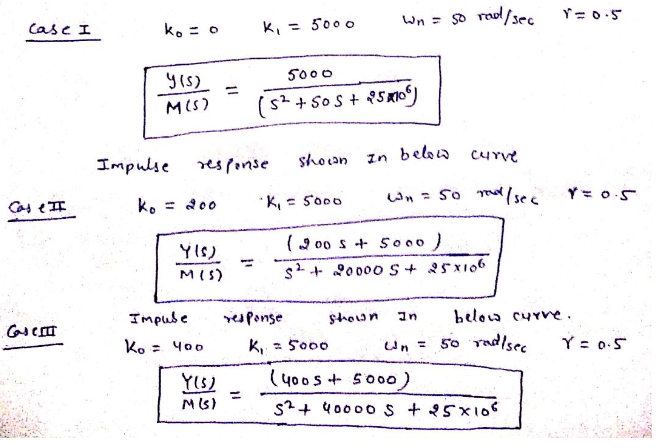 Case I K₀ = 0 K₁ = 5000 Wn = 50 rad/sec r = 0.5
Y(S) / M(S) = 5000 / (S² + 50 S + 25x10⁶)
Impulse response shown In below curve
Case II K₀ = 200 K₁ = 5000 Wn = 50 rad/sec r = 0.5
Y(S) / M(S) = (200 s + 5000) / S² + 20000 S + 25x10⁶
Impulse response shown In below curve.
Case III K₀ = 400 K₁ = 5000 Wn = 50 rad/sec r = 0.5
Y(S) / M(S) = (400 s + 5000) / S² + 40000 S + 25x10⁶